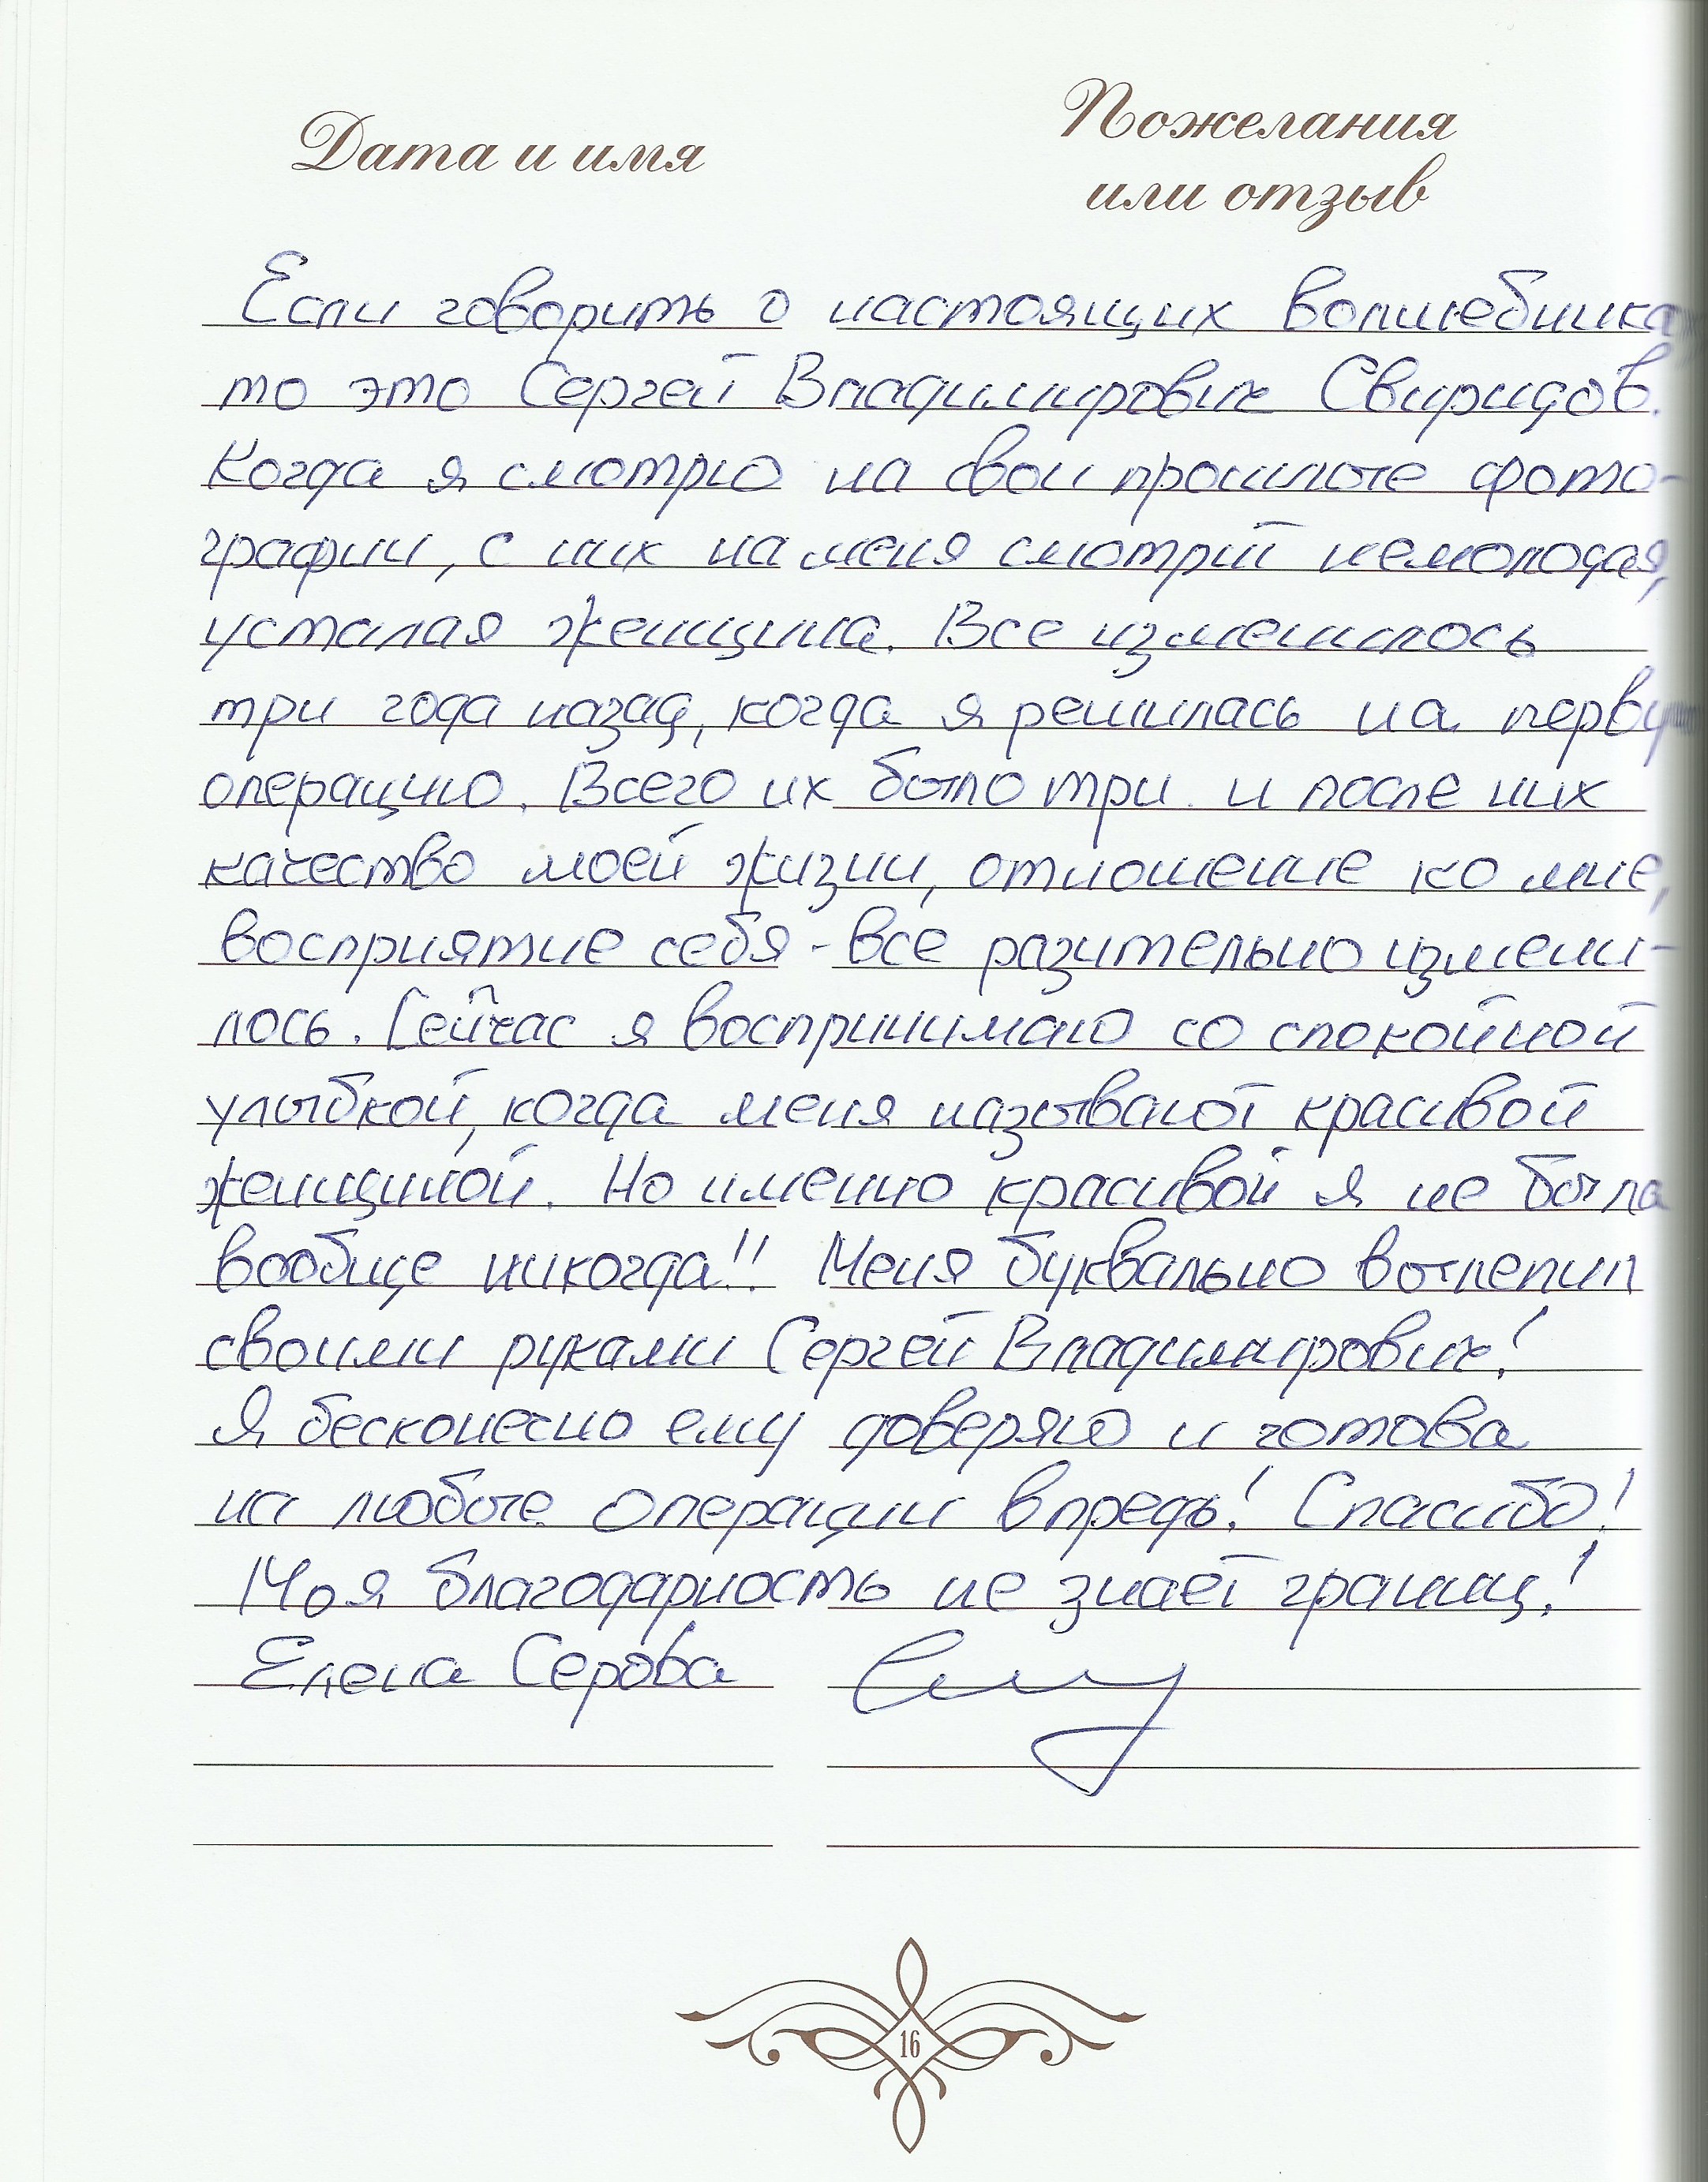 Дата и имя
Пожелания
или отзыв
Если говорить о настоящих волшебника
то это Сергей Владимирович Свиридов.
Когда я смотрю на свои прошлые фото-
графии, с них на меня смотрит немолодая,
усталая женщина. Все изменилось
три года назад, когда я решилась на первую
операцию. Всего их было три и после них
качество моей жизни, отношение ко мне,
восприятие себя - все разительно измени-
лось. Сейчас я воспринимаю со спокойной
улыбкой, когда меня называют красивой
женщиной. Но именно красивой я не была
вообще никогда!! Меня буквально вылепил
своими руками Сергей Владимирович!
Я бесконечно ему доверяю и готова
на любые операции впредь! Спасибо!
Моя благодарность не знает границ!
Елена Серова
16